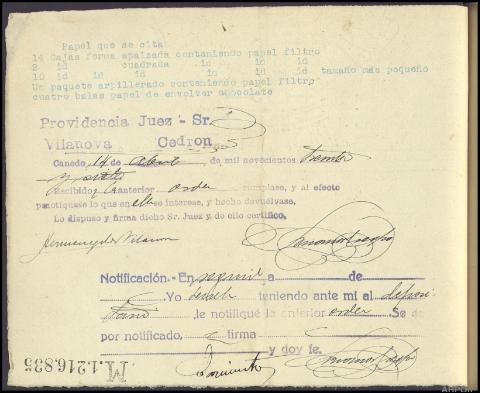 Papel que se cita
14 Cajas forma apaizada conteniendo papel filtro
2 id cuadrada id id id
10 id id id id id id tamaño más pequeño
Un paquete arpillerado conteniendo papel filtro
cuatro balas papel de envolver chocolate
Providencia Juez - Sr.
Vilanova Cedron
Canedo, 14 de Abril de mil novecientos treinta
y siete
Recibido, la anterior orden cúmplase, y al efecto
practíquese lo que en ella se interesa, y hecho devuélvase.
Lo dispuso y firma dicho Sr. Juez y de ello certifico.
Hermenegildo Vilanova
Notificación.- En seguida a de
Yo teniendo ante mí al deposi-
tario le notifiqué la anterior orden. Se
por notificado, firma
y doy fe.
M.1.216.835